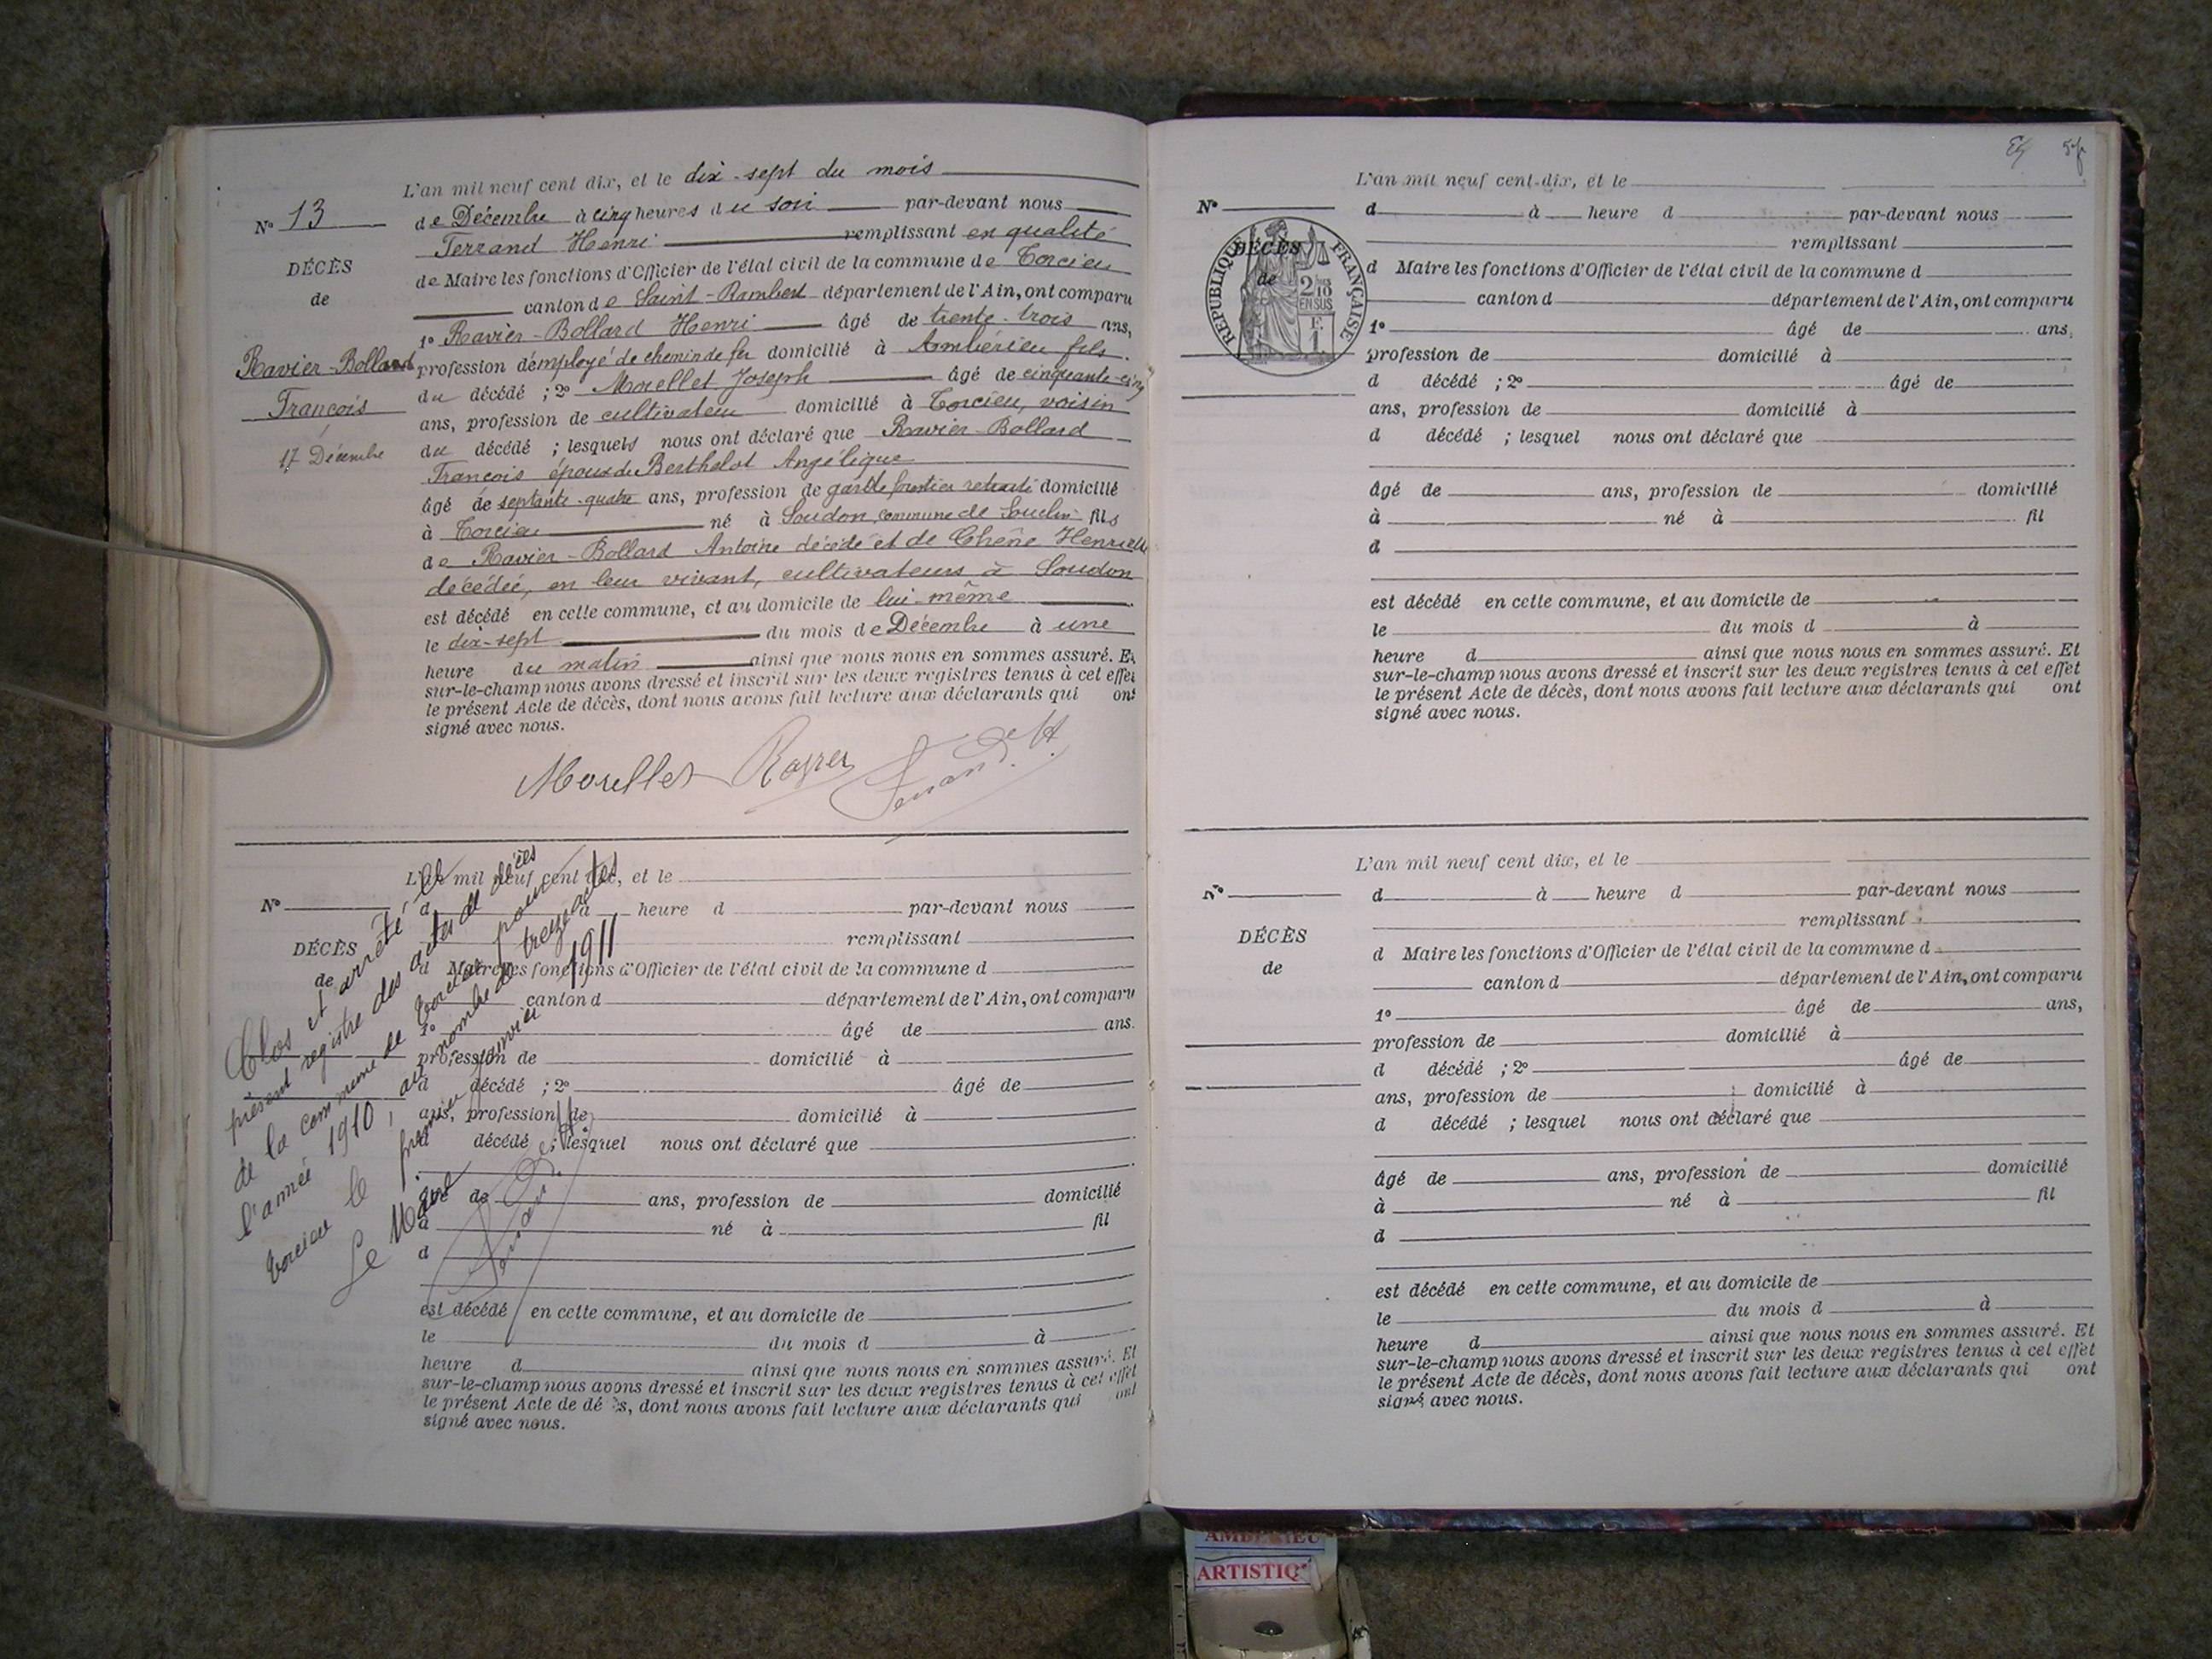 L'an mil neuf cent dix, et le dix-sept du mois
N° 13
de Décembre à cinq heures du soir par-devant nous
Ferrand Henri remplissant en qualité
DÉCÈS
de Maire les fonctions d'Officier de l'état civil de la commune de Torcieu
de
canton de Saint-Rambert département de l'Ain, ont comparu
1° Ravier-Bollard Henri âgé de trente-trois ans,
Ravier-Bollard
profession d'employé de chemin de fer domicilié à Ambérieu fils
du décédé ; 2° Morellet Joseph âgé de cinquante-cinq
François
ans, profession de cultivateur domicilié à Torcieu, voisin
du décédé ; lesquels nous ont déclaré que Ravier-Bollard
17 Décembre
François époux de Berthelot Angélique
âgé de septante-quatre ans, profession de garde forestier retraité domicilié
à Torcieu né à Soudon, commune de Souclin fils
de Ravier-Bollard Antoine décédé et de Chêne Henriette
décédée, en leur vivant, cultivateurs à Soudon
est décédé en cette commune, et au domicile de lui-même
le dix-sept du mois de Décembre à une
heure du matin ainsi que nous nous en sommes assuré. Et
sur-le-champ nous avons dressé et inscrit sur les deux registres tenus à cet effet
le présent Acte de décès, dont nous avons fait lecture aux déclarants qui ont
signé avec nous.
Morellet Ferrand H
L'an mil neuf cent dix, et le
N°
d à heure d par-devant nous
DÉCÈS
remplissant
de
d Maire les fonctions d'Officier de l'état civil de la commune d
canton d département de l'Ain, ont comparu
1° âgé de ans.
profession de domicilié à
d décédé ; 2° âgé de
ans, profession de domicilié à
d décédé ; lesquel nous ont déclaré que
âgé de ans, profession de domicilié
à né à fil
d
est décédé en cette commune, et au domicile de
le du mois d à
heure d ainsi que nous nous en sommes assuré. Et
sur-le-champ nous avons dressé et inscrit sur les deux registres tenus à cet effet
le présent Acte de décès, dont nous avons fait lecture aux déclarants qui ont
signé avec nous.
Clos et arrêté le
présent registre des actes de décès
de la commune de Torcieu pour
l'année 1910, au nombre de treize actes
Torcieu le premier janvier 1911
Le Maire
Ferrand H
L'an mil neuf cent dix, et le
N°
d à heure d par-devant nous
DÉCÈS
remplissant
de
d Maire les fonctions d'Officier de l'état civil de la commune d
RÉPUBLIQUE FRANÇAISE
2/10
EN SUS
F.
1
canton d département de l'Ain, ont comparu
1° âgé de ans,
profession de domicilié à
d décédé ; 2° âgé de
ans, profession de domicilié à
d décédé ; lesquel nous ont déclaré que
âgé de ans, profession de domicilié
à né à fil
d
est décédé en cette commune, et au domicile de
le du mois d à
heure d ainsi que nous nous en sommes assuré. Et
sur-le-champ nous avons dressé et inscrit sur les deux registres tenus à cet effet
le présent Acte de décès, dont nous avons fait lecture aux déclarants qui ont
signé avec nous.
L'an mil neuf cent dix, et le
N°
d à heure d par-devant nous
remplissant
DÉCÈS
d Maire les fonctions d'Officier de l'état civil de la commune d
de
canton d département de l'Ain, ont comparu
1° âgé de ans,
profession de domicilié à
d décédé ; 2° âgé de
ans, profession de domicilié à
d décédé ; lesquel nous ont déclaré que
âgé de ans, profession de domicilié
à né à fil
d
est décédé en cette commune, et au domicile de
le du mois d à
heure d ainsi que nous nous en sommes assuré. Et
sur-le-champ nous avons dressé et inscrit sur les deux registres tenus à cet effet
le présent Acte de décès, dont nous avons fait lecture aux déclarants qui ont
signé avec nous.
AMBERIEU
ARTISTIQ